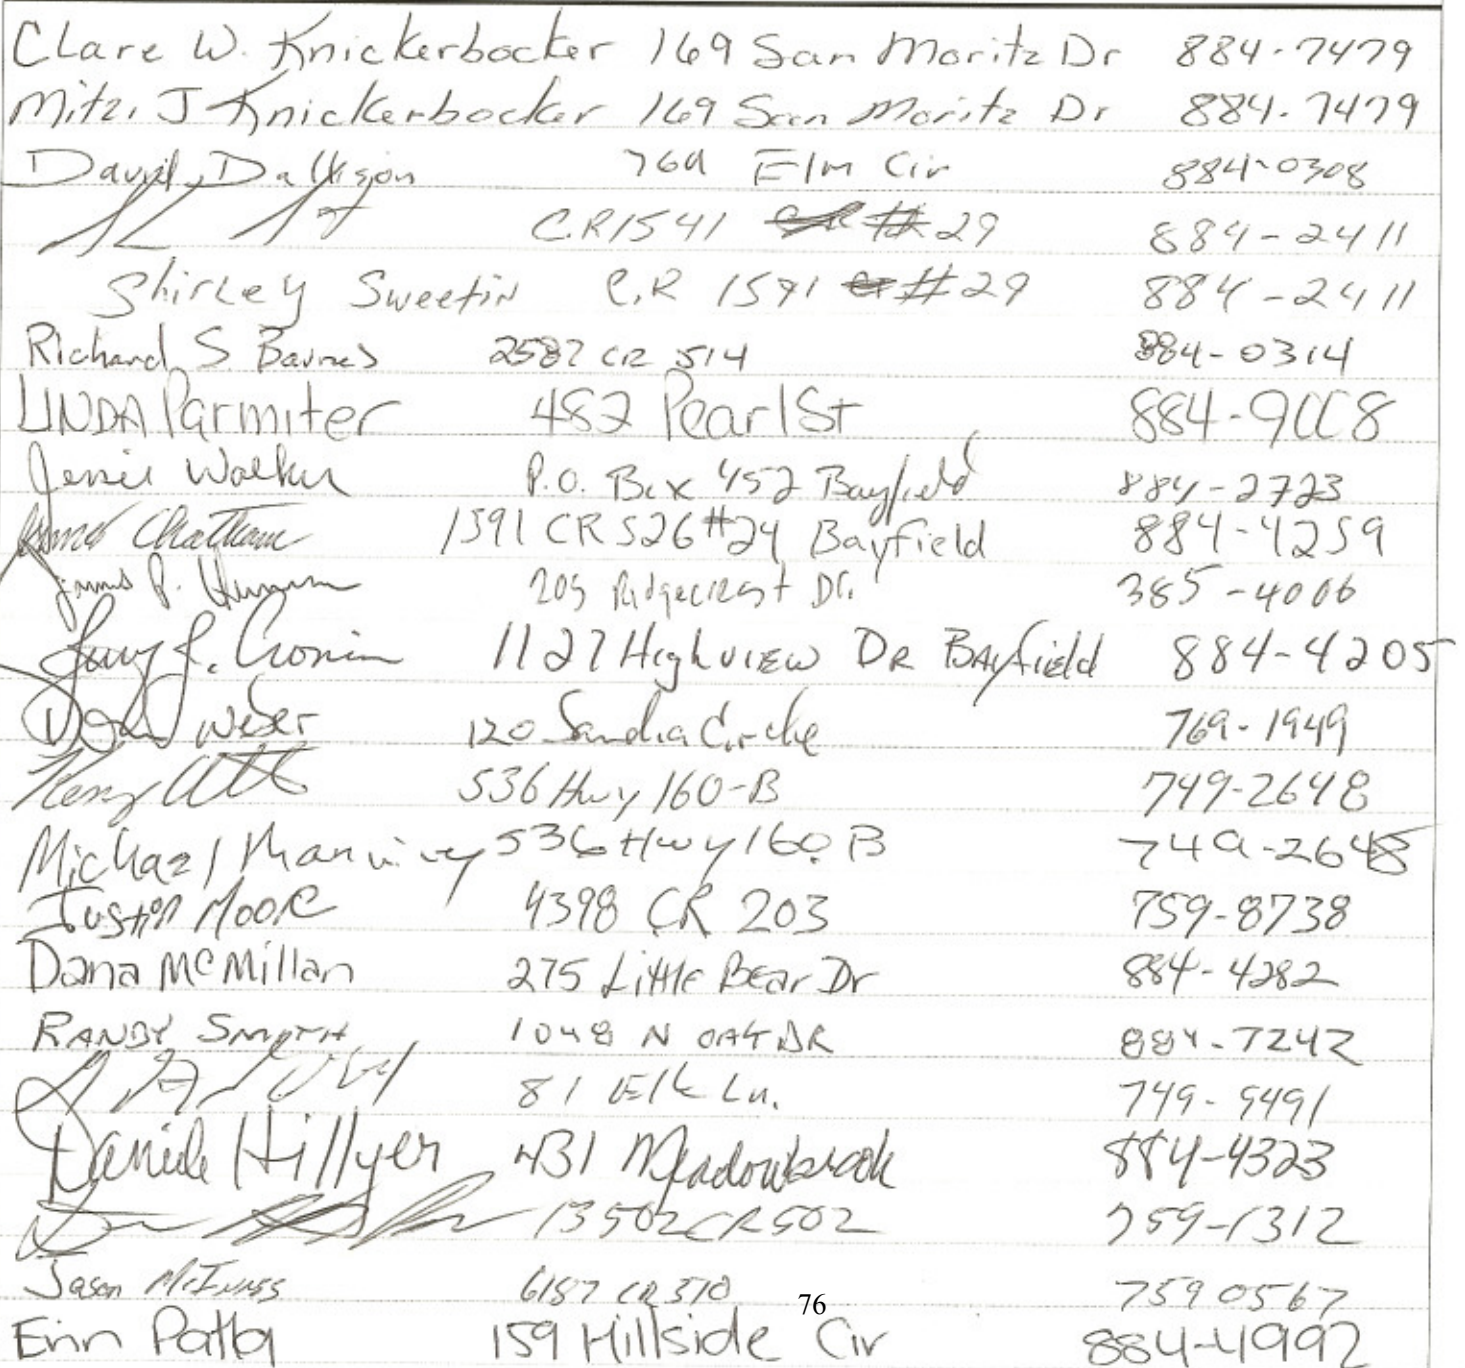 Clare W. Knickerbocker 169 San Moritz Dr 884-7479
Mitzi J Knickerbocker 169 San Moritz Dr 884-7479
David Dallison 769 Elm Cir 884-0308
C.R 1541 #29 884-2411
Shirley Sweetin C.R 1591 #29 884-2411
Richard S. Barnes 2587 CR 514 884-0314
LINDA Parmiter 482 Pearl St 884-9CC8
Walker P.O. Box 452 Bayfield 884-2723
Chatham 1391 CR 526 #24 Bayfield 884-4259
James P. 205 Ridgecrest Dr. 385-4006
J. Cronin 1127 Highview DR BAyfield 884-4205
Weber 120 Sandia Circle 769-1949
536 Hwy 160-B 749-2648
Michael Manning 536 Hwy 160 B 749-2648
Justin Moore 4398 CR 203 759-8738
Dana McMillan 275 Little Bear Dr 884-4282
RANDY SMITH 1048 N OAK DR 884-7242
81 Elk Ln. 749-9491
Daniele Hillyer 431 Meadowbrook 884-4323
13502 CR 502 759-1312
Jason McInnes 6187 CR 310 759 0567
76
Erin 159 Hillside Cir 884-4992